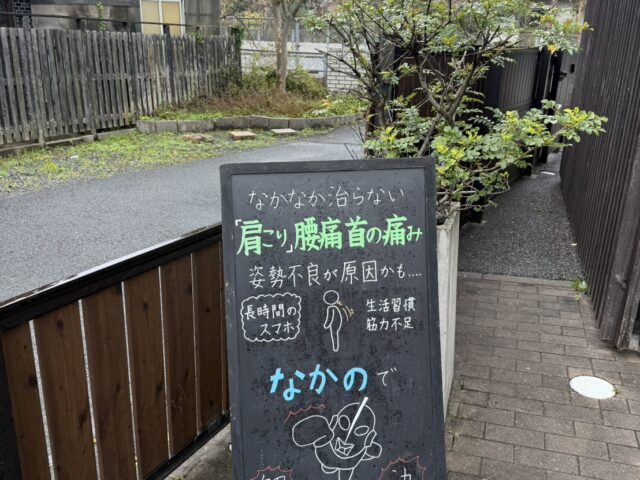 なかなか治らない
「肩こり」腰痛首の痛み
姿勢不良が原因かも....
長時間の
スマホ
生活習慣
筋力不足
なかので